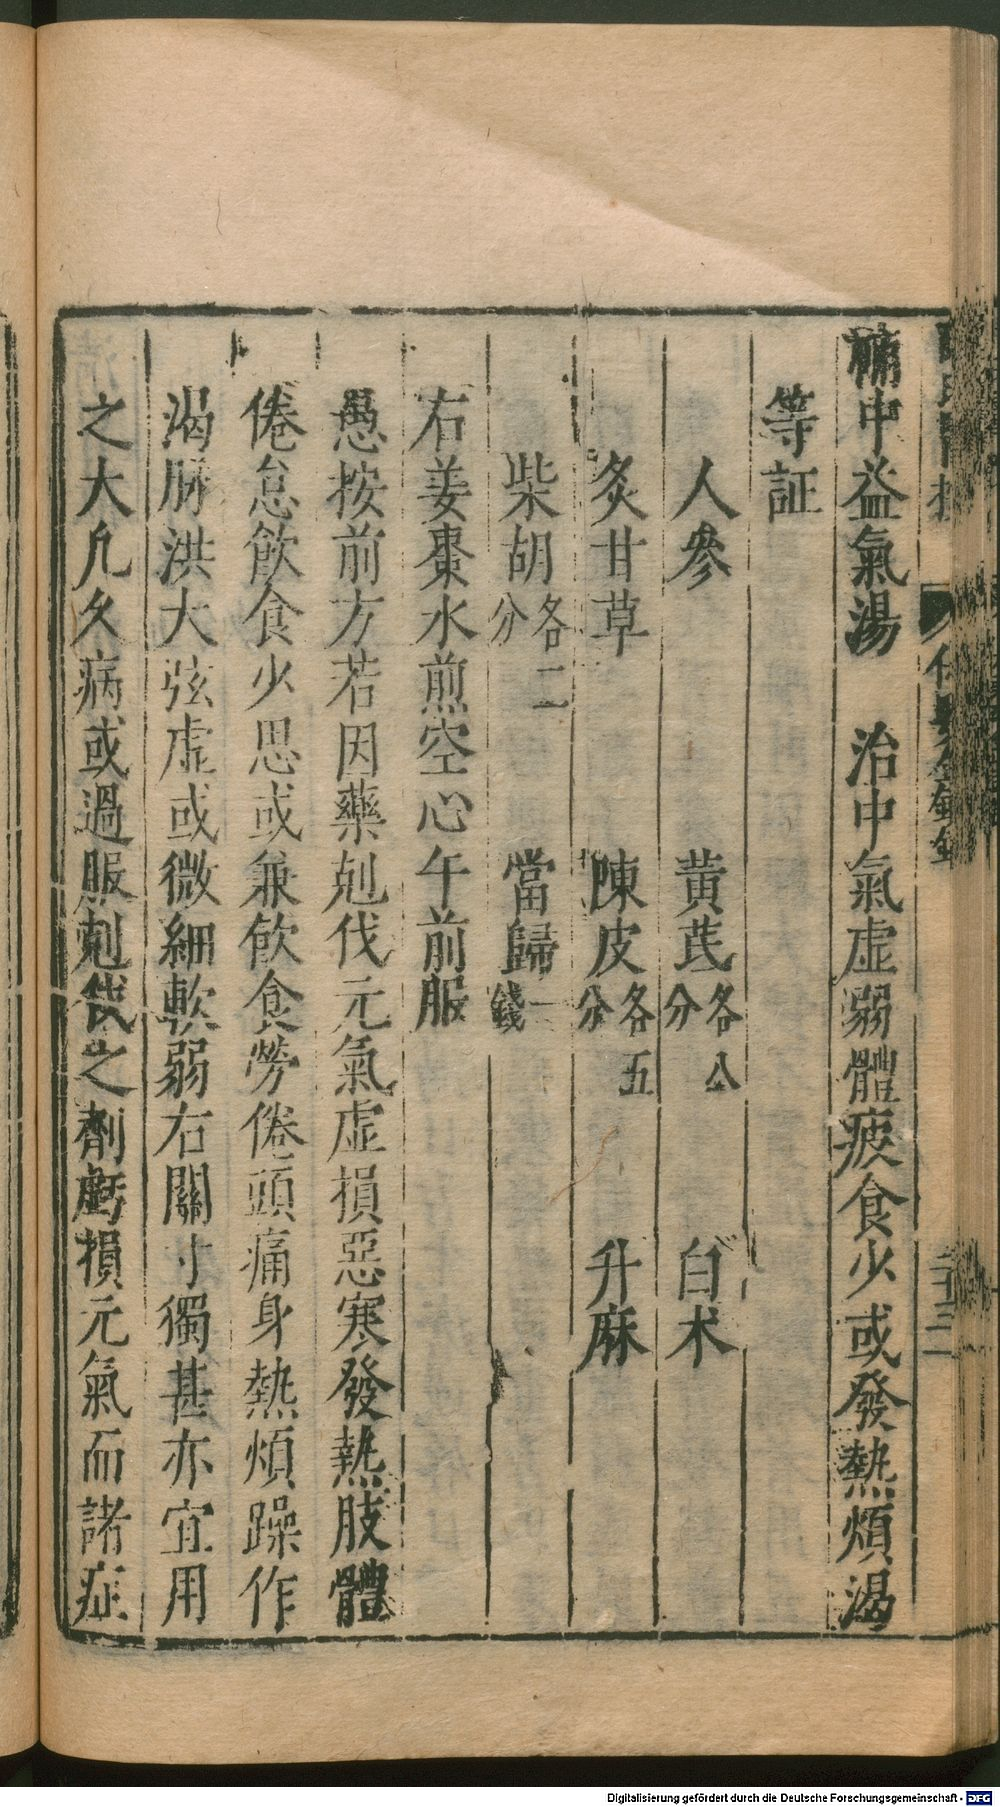 補中益氣湯　治中氣虛弱體疲食少或發熱煩渴
等証
人參　黃芪各八分　白朮
炙甘草　陳皮各五分　升麻
柴胡各二分　當歸一錢
右姜棗水煎空心午前服
愚按前方若因藥剋伐元氣虛損惡寒發熱肢體
倦怠飲食少思或兼飲食勞倦頭痛身熱煩躁作
渴脉洪大弦虛或微細軟弱右關寸獨甚亦宜用
之大凡久病或過服剋伐之劑虧損元氣而諸症
Digitalisierung gefördert durch die Deutsche Forschungsgemeinschaft - DFG